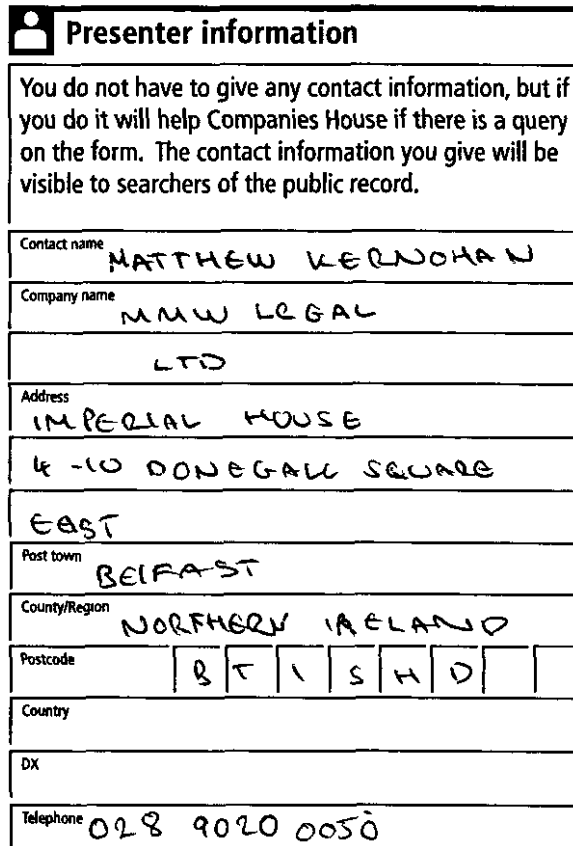 Presenter information
You do not have to give any contact information, but if
you do it will help Companies House if there is a query
on the form. The contact information you give will be
visible to searchers of the public record.
Contact name MATTHEW KERNOHAN
Company name MMW LEGAL
LTD
Address
IMPERIAL HOUSE
4-10 DONEGALL SQUARE
EAST
Post town BELFAST
County/Region NORTHERN IRELAND
Postcode B T 1 5 H D
Country
DX
Telephone 028 9020 0050